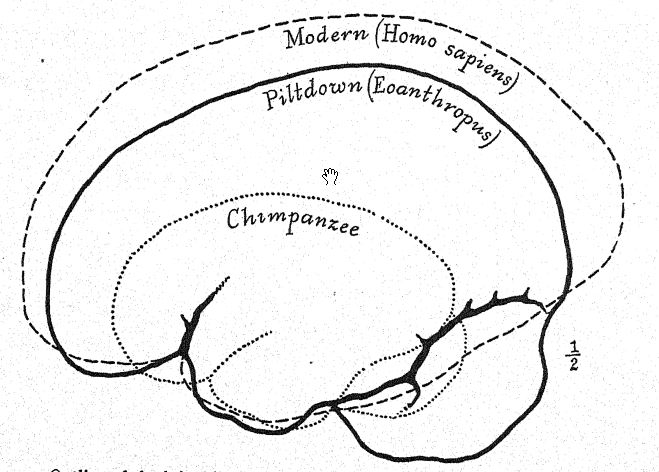 Modern (Homo sapiens)
Piltdown (Eoanthropus)
Chimpanzee
1/2